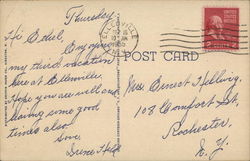 Thursday
Hi Ethel,
Enjoying
my third vacation
here at Ellenville.
Hope you are well and
having some good
times also.
Love,
Irene
ELLENVILLE
POST CARD
Mrs. Ernest Hellwig,
108 Comfort St,
Rochester,
N.Y.